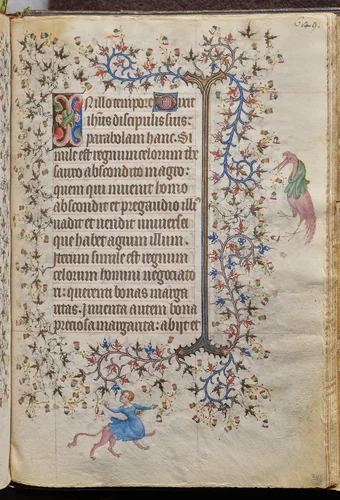 In illo tempore Dixit
ihus discipulis suis:
parabolam hanc. Si
mile est regnum celorum the
sauro abscondito in agro:
quem qui inuenit homo
abscondit et pre gaudio illi
uadit et uendit uniuersa
que habet agrum illum.
Iterum simile est regnum
celorum homini negociato
ri: querenti bonas marga
ritas. Inuenta autem bona
preciosa margarita: abijt et